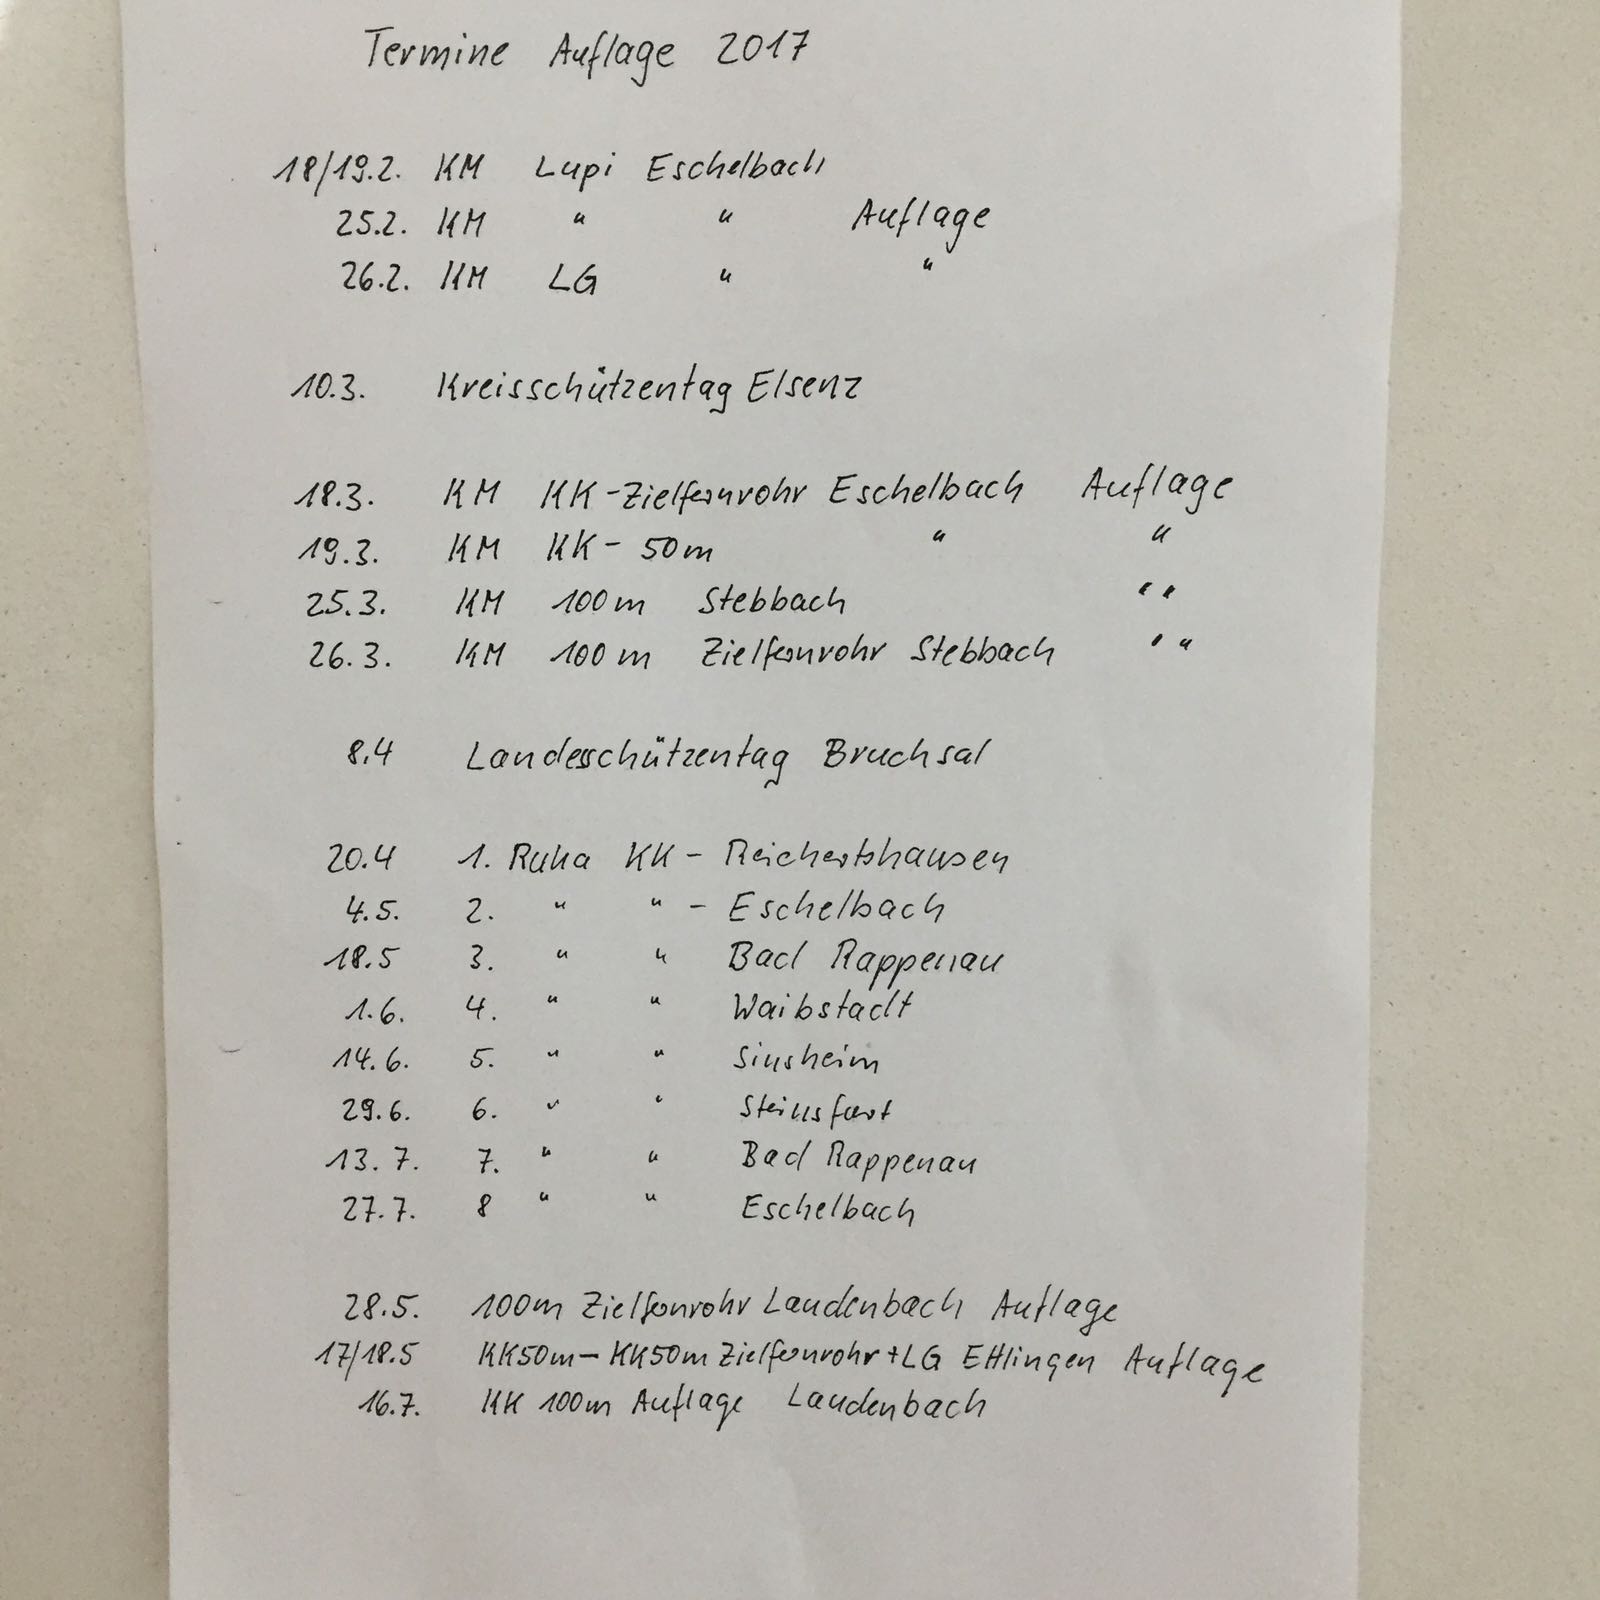 Termine Auflage 2017
18/19.2. KM Lupi Eschelbach
25.2. KM " " Auflage
26.2. KM LG " "
10.3. Kreisschützentag Elsenz
18.3. KM KK-Zielfernrohr Eschelbach Auflage
19.3. KM KK- 50m " "
25.3. KM 100m Stebbach "
26.3. KM 100m Zielfernrohr Stebbach "
8.4 Landesschützentag Bruchsal
20.4 1. Ruha KK - Reichertshausen
4.5. 2. " " - Eschelbach
18.5 3. " " Bad Rappenau
1.6. 4. " " Waibstadt
14.6. 5. " " Sinsheim
29.6. 6. " " Steinsfurt
13.7. 7. " " Bad Rappenau
27.7. 8 " " Eschelbach
28.5. 100m Zielfernrohr Laudenbach Auflage
17/18.5 KK50m-KK50m Zielfernrohr+LG Ettlingen Auflage
16.7. KK 100m Auflage Laudenbach